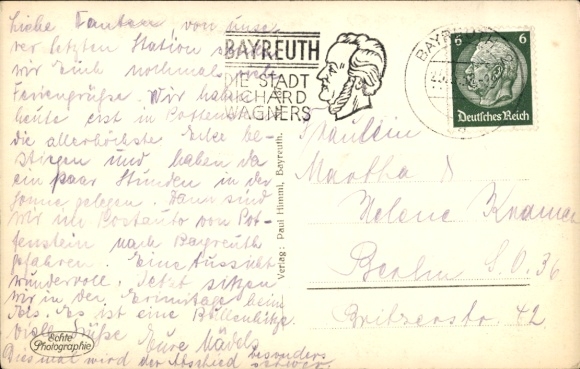 Liebe Tanten von unse
rer letzten Station
wir Euch nochmals
Feriengrüße. Wir
heute erst in Pottenst
die allerhöchste Ecke be-
stiegen und haben da
ein paar Stunden in der
Sonne gelegen. Dann sind
wir im Postauto von Pot-
tenstein nach Bayreuth
gefahren. Eine Aussicht
wundervoll. Jetzt sitzen
wir in der Eremitage beim
Eis. Es ist eine Bullenhitze.
Viele Grüße Eure Mädels
Diesmal wird der Abschied besonders
schwer.
Echte
Photographie
BAYREUTH
DIE STADT
RICHARD
WAGNERS
Verlag: Paul Himml, Bayreuth.
BAYREUTH
6 6
Deutsches Reich
Fräulein
Martha &
Helene
Berlin S.O. 36
Britzerstr. 42